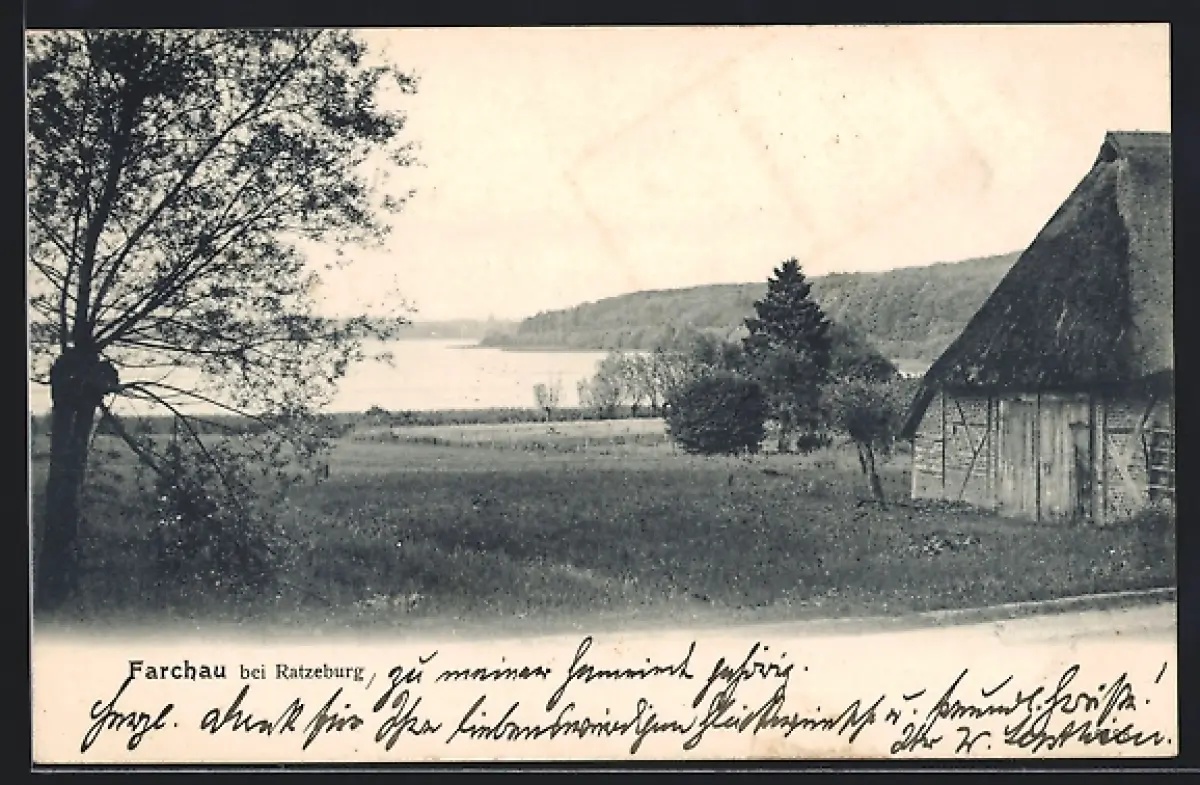 Farchau bei Ratzeburg, zu meiner Gemeinde gehörig.
Herzl. Dank für Ihre liebenswürdigen Glückwünsche u. freundl. Grüße!
Ihr W.